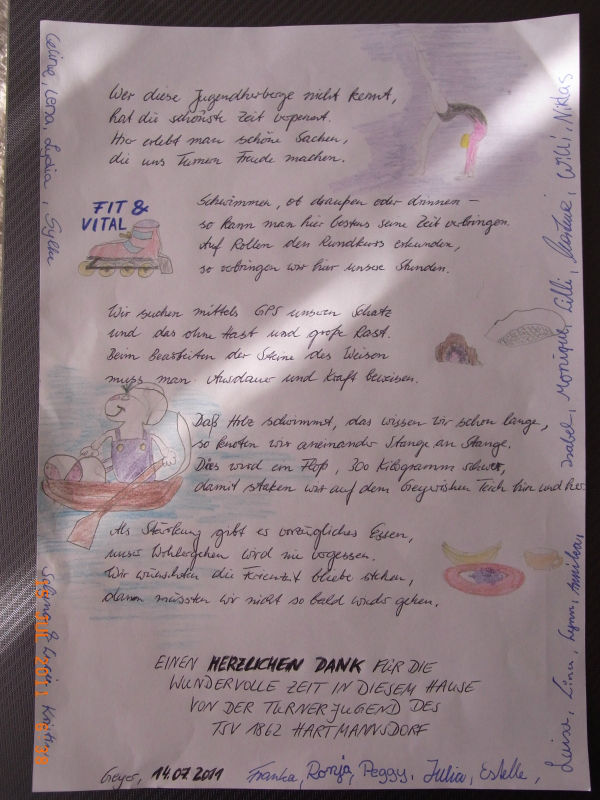 Wer diese Jugendherberge nicht kennt,
hat die schönste Zeit verpennt.
Hier erlebt man schöne Sachen,
die uns Turnern Freude machen.
FIT &
VITAL
Schwimmen, ob draußen oder drinnen –
so kann man hier bestens seine Zeit verbringen.
Auf Rollen den Rundkurs erkunden,
so verbringen wir hier unsere Stunden.
Wir suchen mittels GPS unseren Schatz
und das ohne Hast und große Rast.
Beim Bearbeiten der Steine des Weisen
muss man Ausdauer und Kraft beweisen.
Daß Holz schwimmt, das wissen wir schon lange,
so knoten wir aneinander Stange an Stange.
Dies wird ein Floß, 300 Kilogramm schwer,
damit staken wir auf dem Geyerischen Teich hin und her.
Als Stärkung gibt es vorzügliches Essen,
unser Wohlergehen wird nie vergessen.
Wir wünschten die Ferienzeit bliebe stehen,
dann müssten wir nicht so bald wieder gehen.
EINEN HERZLICHEN DANK FÜR DIE
WUNDERVOLLE ZEIT IN DIESEM HAUSE
VON DER TURNERJUGEND DES
TSV 1862 HARTMANNSDORF
Geyer, 14.07.2011
Franka, Ronja, Peggy, Julia, Estelle,
Luisa, Lina, Lynn,
Isabel, Monique, Lilli, Willi, Niklas
Celine, Lena, Lydia,